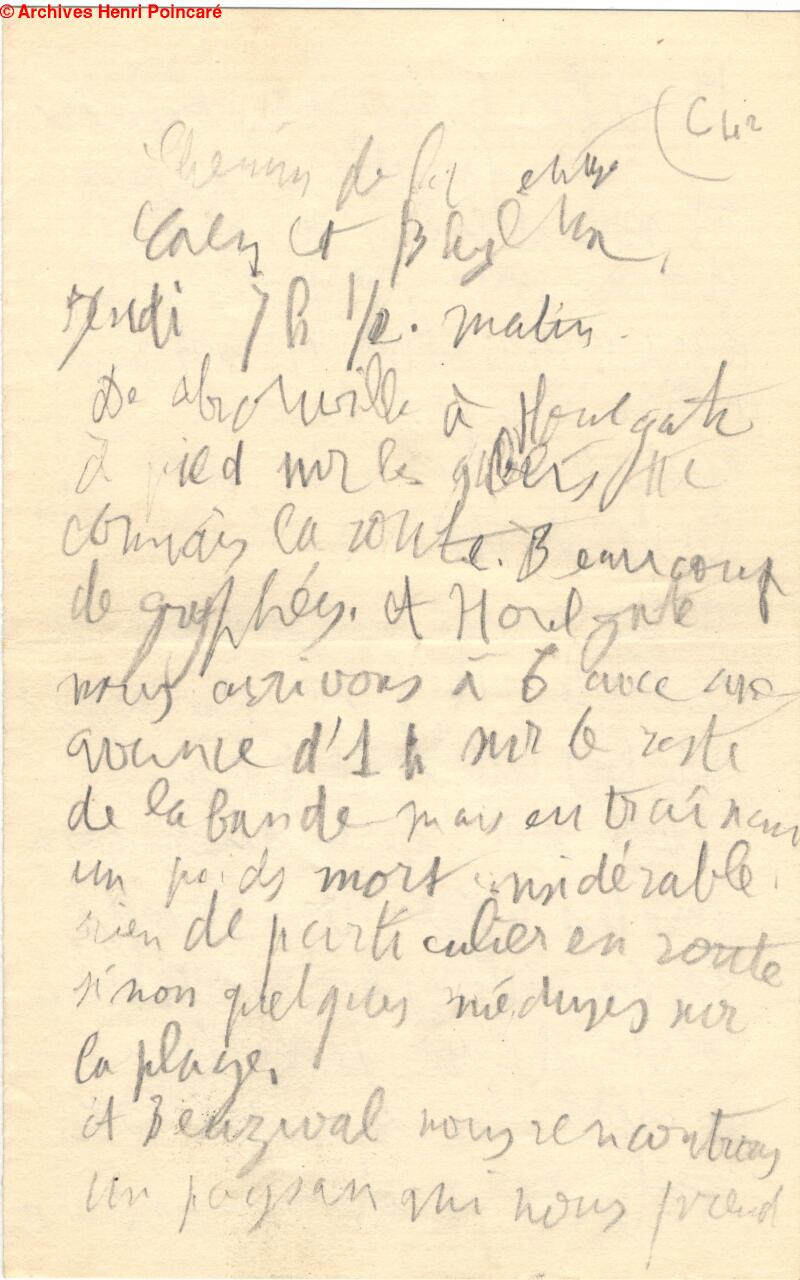 © Archives Henri Poincaré
Chemin de fer entre
Caen et
Jendi 7 h 1/2. matin.
De à Houlgate
à pied sur les galets
connais la route. Beaucoup
de gryphées. A Houlgate
nous arrivons à 6 avec une
avance d'1 h sur le reste
de la bande mais en traînant
un poids mort considérable.
rien de particulier en route
sinon quelques méduses sur
la plage.
A Beuzeval nous rencontrons
un paysan qui nous prend